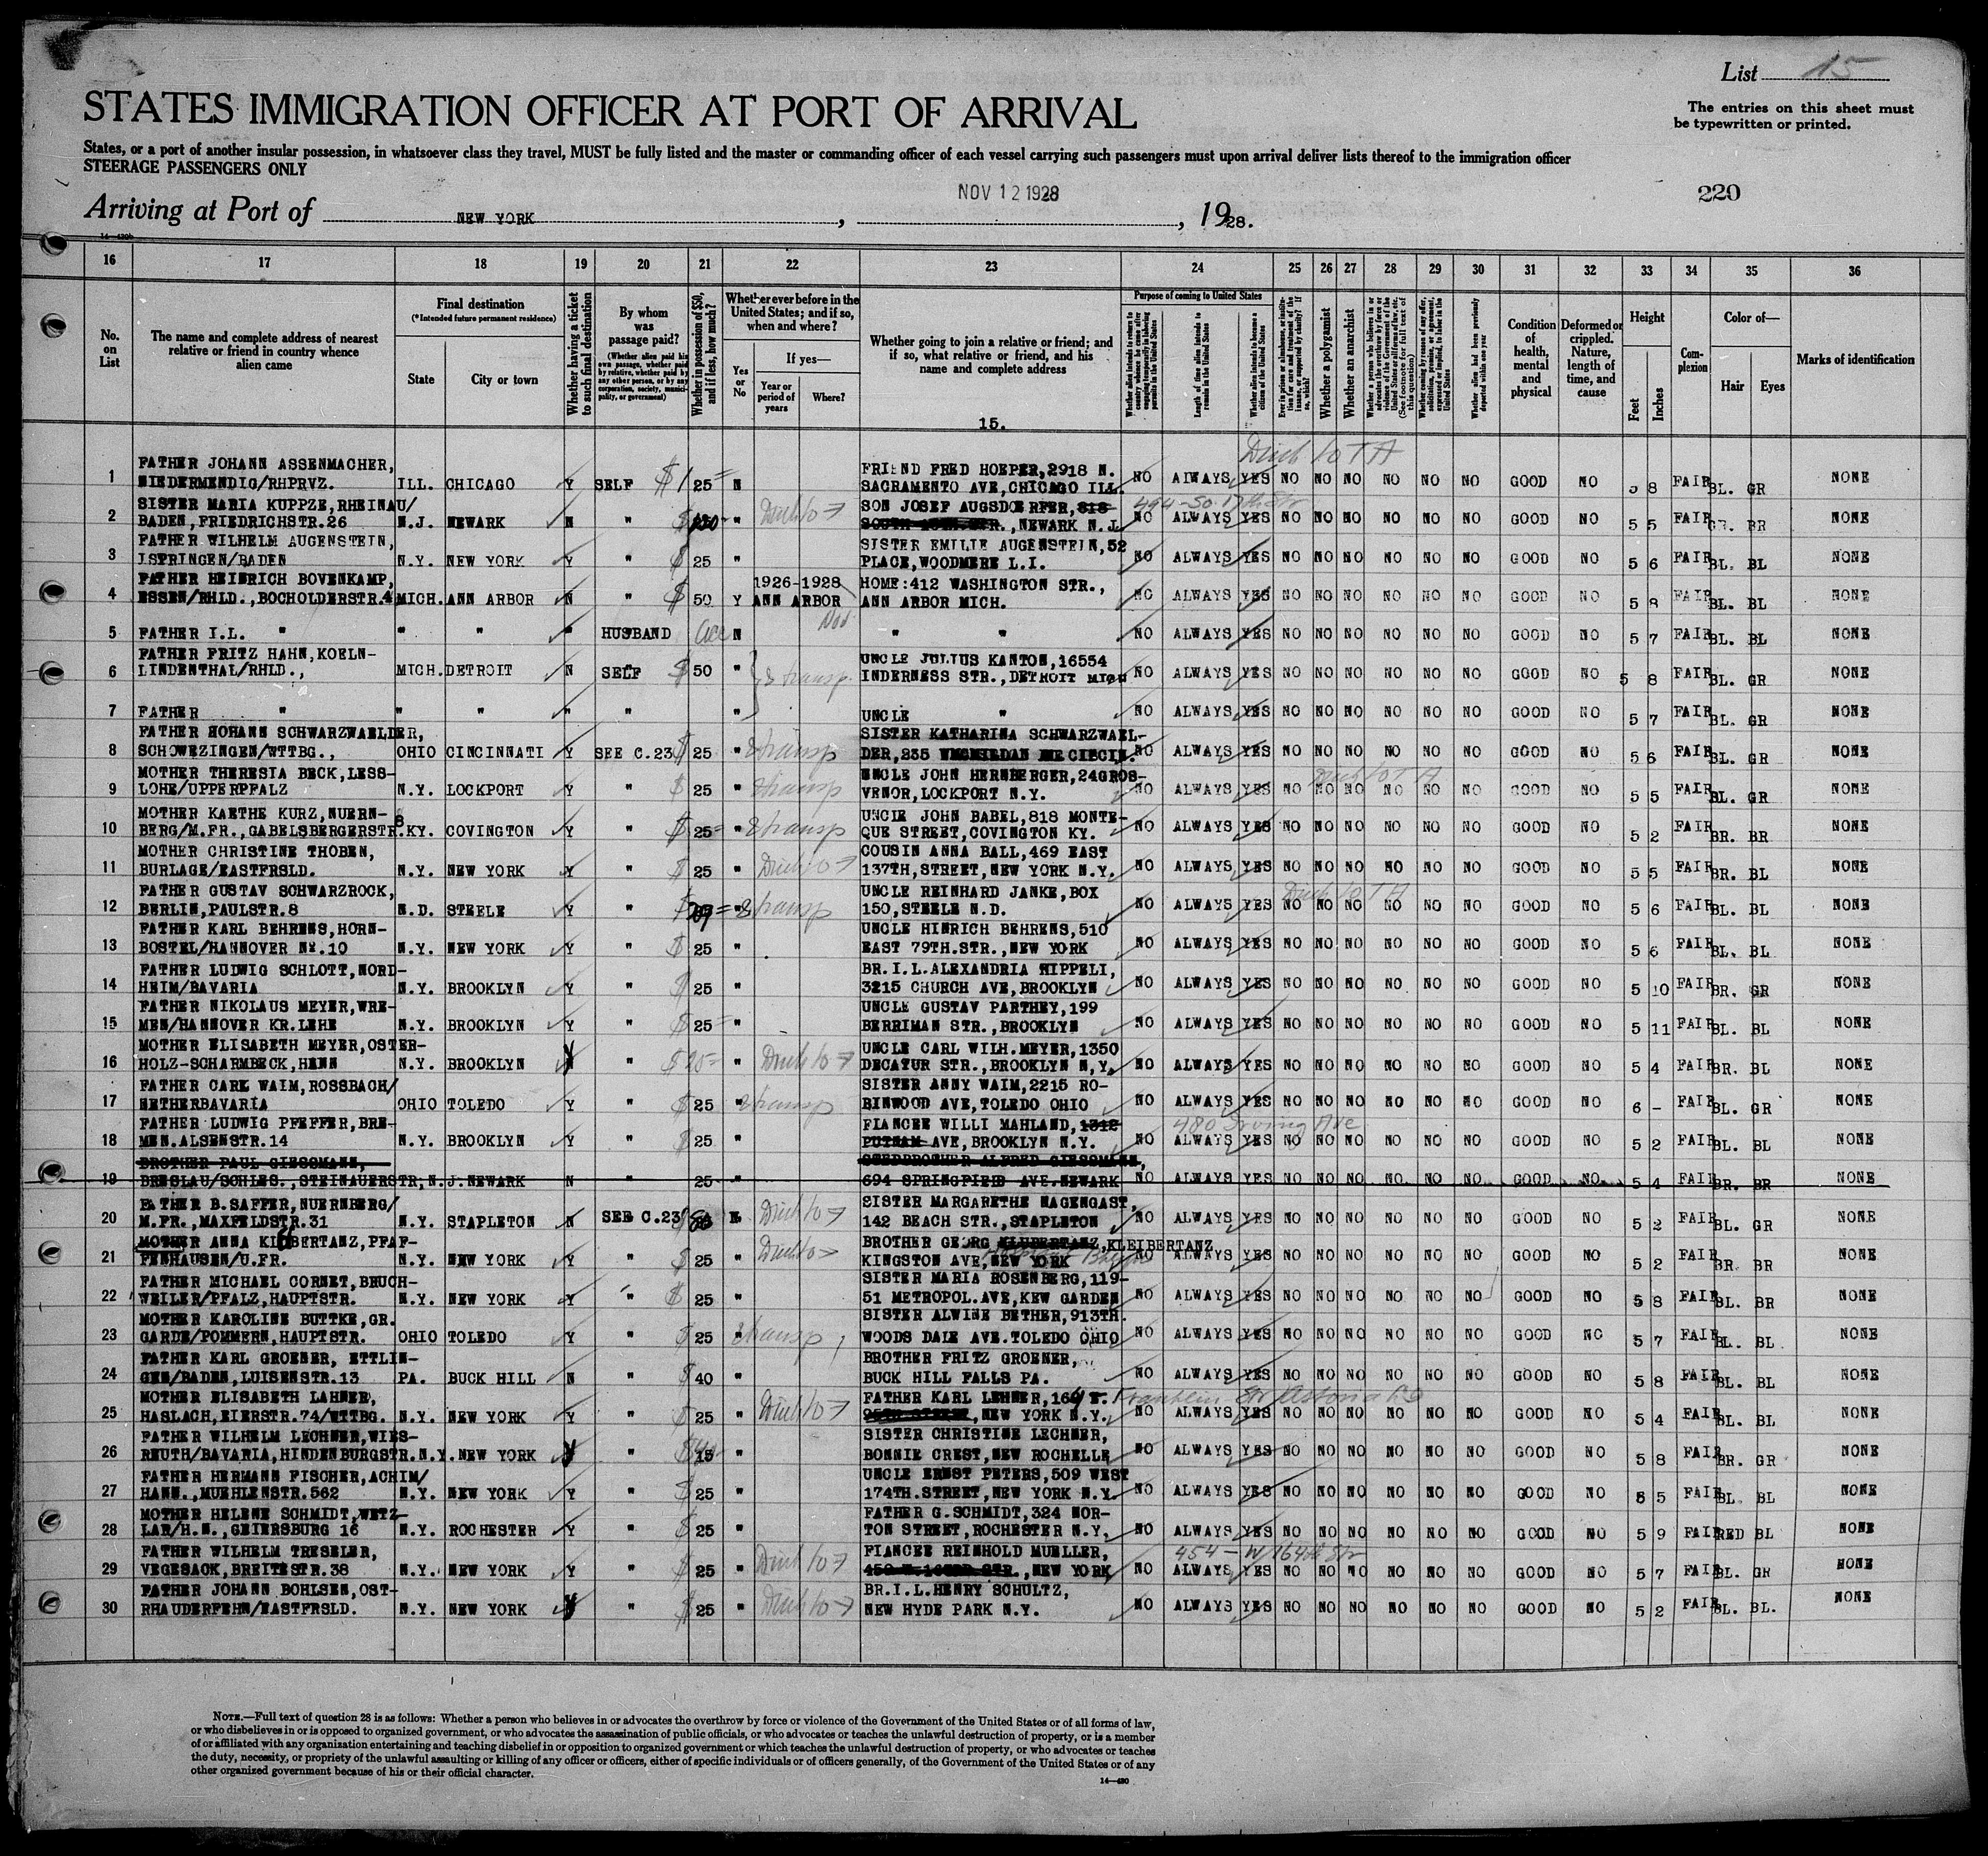 List 15
The entries on this sheet must
be typewritten or printed.
STATES IMMIGRATION OFFICER AT PORT OF ARRIVAL
States, or a port of another insular possession, in whatsoever class they travel, MUST be fully listed and the master or commanding officer of each vessel carrying such passengers must upon arrival deliver lists thereof to the immigration officer
STEERAGE PASSENGERS ONLY
NOV 12 1928
220
Arriving at Port of NEW YORK, , 1928.
16 17 18 19 20 21 22 23 24 25 26 27 28 29 30 31 32 33 34 35 36
No. on List
The name and complete address of nearest relative or friend in country whence alien came
Final destination
(*Intended future permanent residence)
State City or town
Whether having a ticket to such final destination
By whom was passage paid?
(Whether alien paid his own passage, whether paid by relative, whether paid by any other person, or by any corporation, society, municipality, or government)
Whether in possession of $50, and if less, how much?
Whether ever before in the United States; and if so, when and where?
Yes or No
If yes—
Year or period of years
Where?
Whether going to join a relative or friend; and if so, what relative or friend, and his name and complete address
15.
Purpose of coming to United States
Length of time alien intends to remain in the United States
Whether alien intends to become a citizen of the United States
Whether a polygamist
Whether an anarchist
(See footnote for full text of this question)
Whether alien had been previously deported within one year
Condition of health, mental and physical
Deformed or crippled. Nature, length of time, and cause
Height
Feet Inches
Complexion
Color of—
Hair Eyes
Marks of identification
FATHER JOHANN ASSENMACHER, FRIEND FRED HOEPER,2918 N.
1 NIEDERMENDIG/RHPRVZ. ILL. CHICAGO Y SELF $ 25 N SACRAMENTO AVE,CHICAGO ILL. NO ALWAYS YES NO NO NO NO NO NO GOOD NO 5 8 FAIR BL. GR NONE
SISTER MARIA KUPPZE,RHEINAU/ SON JOSEF AUGSDOERFER,818
2 BADEN,FRIEDRICHSTR.26 N.J. NEWARK N " $ " , NEWARK N.J. NO ALWAYS YES NO NO NO NO NO NO GOOD NO 5 5 FAIR GR. BR NONE
FATHER WILHELM AUGENSTEIN, SISTER EMILIE AUGENSTEIN,52
3 ISPRINGEN/BADEN N.Y. NEW YORK Y " $ 25 " PLACE,WOODMERE L.I. NO ALWAYS YES NO NO NO NO NO NO GOOD NO 5 6 FAIR BL. BL NONE
FATHER HEINRICH BOVENKAMP, 1926-1928 HOME:412 WASHINGTON STR.,
4 ESSEN/RHLD.,BOCHOLDERSTR.4 MICH. ANN ARBOR N " $ 50 Y ANN ARBOR ANN ARBOR MICH. NO ALWAYS YES NO NO NO NO NO NO GOOD NO 5 8 FAIR BL. BL NONE
5 FATHER I.L. " " " " HUSBAND N " " NO ALWAYS YES NO NO NO NO NO NO GOOD NO 5 7 FAIR BL. BL NONE
FATHER FRITZ HAHN,KOELN- UNCLE JULIUS KANTON,16554
6 LINDENTHAL/RHLD., MICH. DETROIT N SELF $ 50 " INDERNESS STR.,DETROIT MICH NO ALWAYS YES NO NO NO NO NO NO GOOD NO 5 8 FAIR BL. GR NONE
7 FATHER " " " " " " UNCLE " NO ALWAYS YES NO NO NO NO NO NO GOOD NO 5 7 FAIR BL. GR NONE
FATHER HOHANN SCHWARZWAELDER, SISTER KATHARINA SCHWARZWAEL-
8 SCHOWEZINGEN/WTTBG., OHIO CINCINNATI Y SEE C.23 $ 25 " DER,235 NO ALWAYS YES NO NO NO NO NO NO GOOD NO 5 6 FAIR BL. GR NONE
MOTHER THERESIA BECK,LESS- UNCLE JOHN HERNBERGER,24GROS-
9 LOHE/UPPERPFALZ N.Y. LOCKPORT Y " $ 25 " VENOR,LOCKPORT N.Y. NO ALWAYS YES NO NO NO NO NO NO GOOD NO 5 5 FAIR BL. GR NONE
MOTHER KAETHE KURZ,NUERN- UNCLE JOHN BABEL,818 MONTE-
10 BERG/M.FR.,GABELSBERGERSTR.8 KY. COVINGTON Y " $ 25 " QUE STREET,COVINGTON KY. NO ALWAYS YES NO NO NO NO NO NO GOOD NO 5 2 FAIR BR. BR NONE
MOTHER CHRISTINE THOBEN, COUSIN ANNA BALL,469 EAST
11 BURLAGE/EASTFRSLD. N.Y. NEW YORK Y " $ 25 " 137TH,STREET,NEW YORK N.Y. NO ALWAYS YES NO NO NO NO NO NO GOOD NO 5 5 FAIR BR. BL NONE
FATHER GUSTAV SCHWARZROCK, UNCLE REINHARD JANKE,BOX
12 BERLIN,PAULSTR.8 N.D. STEELE Y " $ " 150,STEELE N.D. NO ALWAYS YES NO NO NO NO NO NO GOOD NO 5 6 FAIR BL. BL NONE
FATHER KARL BEHRENS,HORN- UNCLE HINRICH BEHRENS,510
13 BOSTEL/HANNOVER Nr.10 N.Y. NEW YORK Y " $ 25 " EAST 79TH.STR.,NEW YORK NO ALWAYS YES NO NO NO NO NO NO GOOD NO 5 6 FAIR BL. BL NONE
FATHER LUDWIG SCHLOTT,NORD- BR.I.L.ALEXANDRIA HIPPELI,
14 HEIM/BAVARIA N.Y. BROOKLYN Y " $ 25 " 3215 CHURCH AVE,BROOKLYN NO ALWAYS YES NO NO NO NO NO NO GOOD NO 5 10 FAIR BR. GR NONE
FATHER NIKOLAUS MEYER,WRE- UNCLE GUSTAV PARTHEY,199
15 MEN/HANNOVER KR.LEHE N.Y. BROOKLYN Y " $ 25 " BERRIMAN STR.,BROOKLYN NO ALWAYS YES NO NO NO NO NO NO GOOD NO 5 11 FAIR BL. BL NONE
MOTHER ELISABETH MEYER,OSTER- UNCLE CARL WILH.MEYER,1350
16 HOLZ-SCHARMBECK,HANN N.Y. BROOKLYN Y " $ 25 " DECATUR STR.,BROOKLYN N,Y. NO ALWAYS YES NO NO NO NO NO NO GOOD NO 5 4 FAIR BR. BL NONE
FATHER CARL WAIM,ROSSBACH/ SISTER ANNY WAIM,2215 RO-
17 NETHERBAVARIA OHIO TOLEDO Y " $ 25 BINWOOD AVE,TOLEDO OHIO NO ALWAYS YES NO NO NO NO NO NO GOOD NO 6 - FAIR BL. GR NONE
FATHER LUDWIG PFEFFER,BRE- FIANCEE WILLI MAHLAND,1312 480 Irving Ave
18 MEN.ALSENSTR.14 N.Y. BROOKLYN Y " $ 25 " PUTNAM AVE,BROOKLYN N.Y. NO ALWAYS YES NO NO NO NO NO NO GOOD NO 5 2 FAIR BL. BL NONE
BROTHER PAUL GIESSMANN, STEPBROTHER ALFRED GIESSMANN,
19 BRESLAU/SCHLES.,STEINAUERSTR, N.J. NEWARK N " 25 " 694 SPRINGFIED AVE.NEWARK NO ALWAYS YES NO NO NO NO NO NO GOOD NO 5 4 FAIR BR. BR NONE
FATHER B.SAFFER,NUERNBERG/ SISTER MARGARETHE HAGENGAST,
20 M.FR.,MAXFELDSTR.31 N.Y. STAPLETON N SEE C.23 142 BEACH STR.,STAPLETON NO ALWAYS YES NO NO NO NO NO NO GOOD NO 5 2 FAIR BL. GR NONE
MOTHER ANNA BERTANZ,PFAF- BROTHER GEORG KLUBERTANZ,KLEIBERTANZ
21 FENHAUSEN/U.FR. N.Y. NEW YORK Y " $ 25 " KINGSTON AVE,NEW YORK NO ALWAYS YES NO NO NO NO NO NO GOOD NO 5 2 FAIR BR. BR NONE
FATHER MICHAEL CORNET,BRUCH- SISTER MARIA ROSENBERG,119-
22 WEILER/PFALZ,HAUPTSTR. N.Y. NEW YORK Y " $ 25 " 51 METROPOL.AVE,KEW GARDEN NO ALWAYS YES NO NO NO NO NO NO GOOD NO 5 8 FAIR BL. BR NONE
MOTHER KAROLINE BUTTKE,GR. SISTER ALWINE BETHER,913TH.
23 GARDE/POMMERN,HAUPTSTR. OHIO TOLEDO Y " $ 25 " WOODS DALE AVE.TOLEDO OHIO NO ALWAYS YES NO NO NO NO NO NO GOOD NO 5 7 FAIR BL. BL NONE
FATHER KARL GROENER, ETTLIN- BROTHER FRITZ GROENER,
24 GEN/BADEN,LUISENSTR.13 PA. BUCK HILL N " $ 40 " BUCK HILL FALLS PA. NO ALWAYS YES NO NO NO NO NO NO GOOD NO 5 8 FAIR BL. BL NONE
MOTHER ELISABETH LAHNER, FATHER KARL LEHNER,164 Franklin St Astoria
25 HASLACH,EIERSTR.74/WTTBG. N.Y. NEW YORK Y " $ 25 " ,NEW YORK N.Y. NO ALWAYS YES NO NO NO NO NO NO GOOD NO 5 4 FAIR BL. BL NONE
FATHER WILHELM LECHNER,WIES- SISTER CHRISTINE LECHNER,
26 REUTH/BAVARIA,HINDENBURGSTR. N.Y. NEW YORK Y " $ 15 " BONNIE CREST,NEW ROCHELLE NO ALWAYS YES NO NO NO NO NO NO GOOD NO 5 8 FAIR BR. GR NONE
FATHER HERMANN FISCHER,ACHIM/ UNCLE ERNST PETERS,509 WEST
27 HANN.,MUEHLENSTR.562 N.Y. NEW YORK Y " $ 25 " 174TH.STREET,NEW YORK N.Y. NO ALWAYS YES NO NO NO NO NO NO GOOD NO 5 5 FAIR BL BL NONE
MOTHER HELENE SCHMIDT,WETZ- FATHER G.SCHMIDT,324 NOR-
28 LAR/H.N.,GEIERSBURG 16 N.Y. ROCHESTER Y " $ 25 " TON STREET,ROCHESTER N.Y. NO ALWAYS YES NO NO NO NO NO NO GOOD NO 5 9 FAIR RED BL NONE
FATHER WILHELM TRESELER, FIANCEE REINHOLD MUELLER, 454 - W 164th Str
29 VEGESACK,BREITESTR.38 N.Y. NEW YORK Y " $ 25 " ,NEW YORK NO ALWAYS YES NO NO NO NO NO NO GOOD NO 5 7 FAIR BL. GR NONE
FATHER JOHANN BOHLSEN,OST- BR.I.L.HENRY SCHULTZ,
30 RHAUDERFEHN/EASTFRSLD. N.Y. NEW YORK Y " $ 25 " NEW HYDE PARK N.Y. NO ALWAYS YES NO NO NO NO NO NO GOOD NO 5 2 FAIR BL. BL. NONE
NOTE.—Full text of question 28 is as follows: Whether a person who believes in or advocates the overthrow by force or violence of the Government of the United States or of all forms of law,
or who disbelieves in or is opposed to organized government, or who advocates the assassination of public officials, or who advocates or teaches the unlawful destruction of property, or is a member
of or affiliated with any organization entertaining and teaching disbelief in or opposition to organized government or which teaches the unlawful destruction of property, or who advocates or teaches
the duty, necessity, or propriety of the unlawful assaulting or killing of any officer or officers, either of specific individuals or of officers generally, of the Government of the United States or of any
other organized government because of his or their official character.
14—430